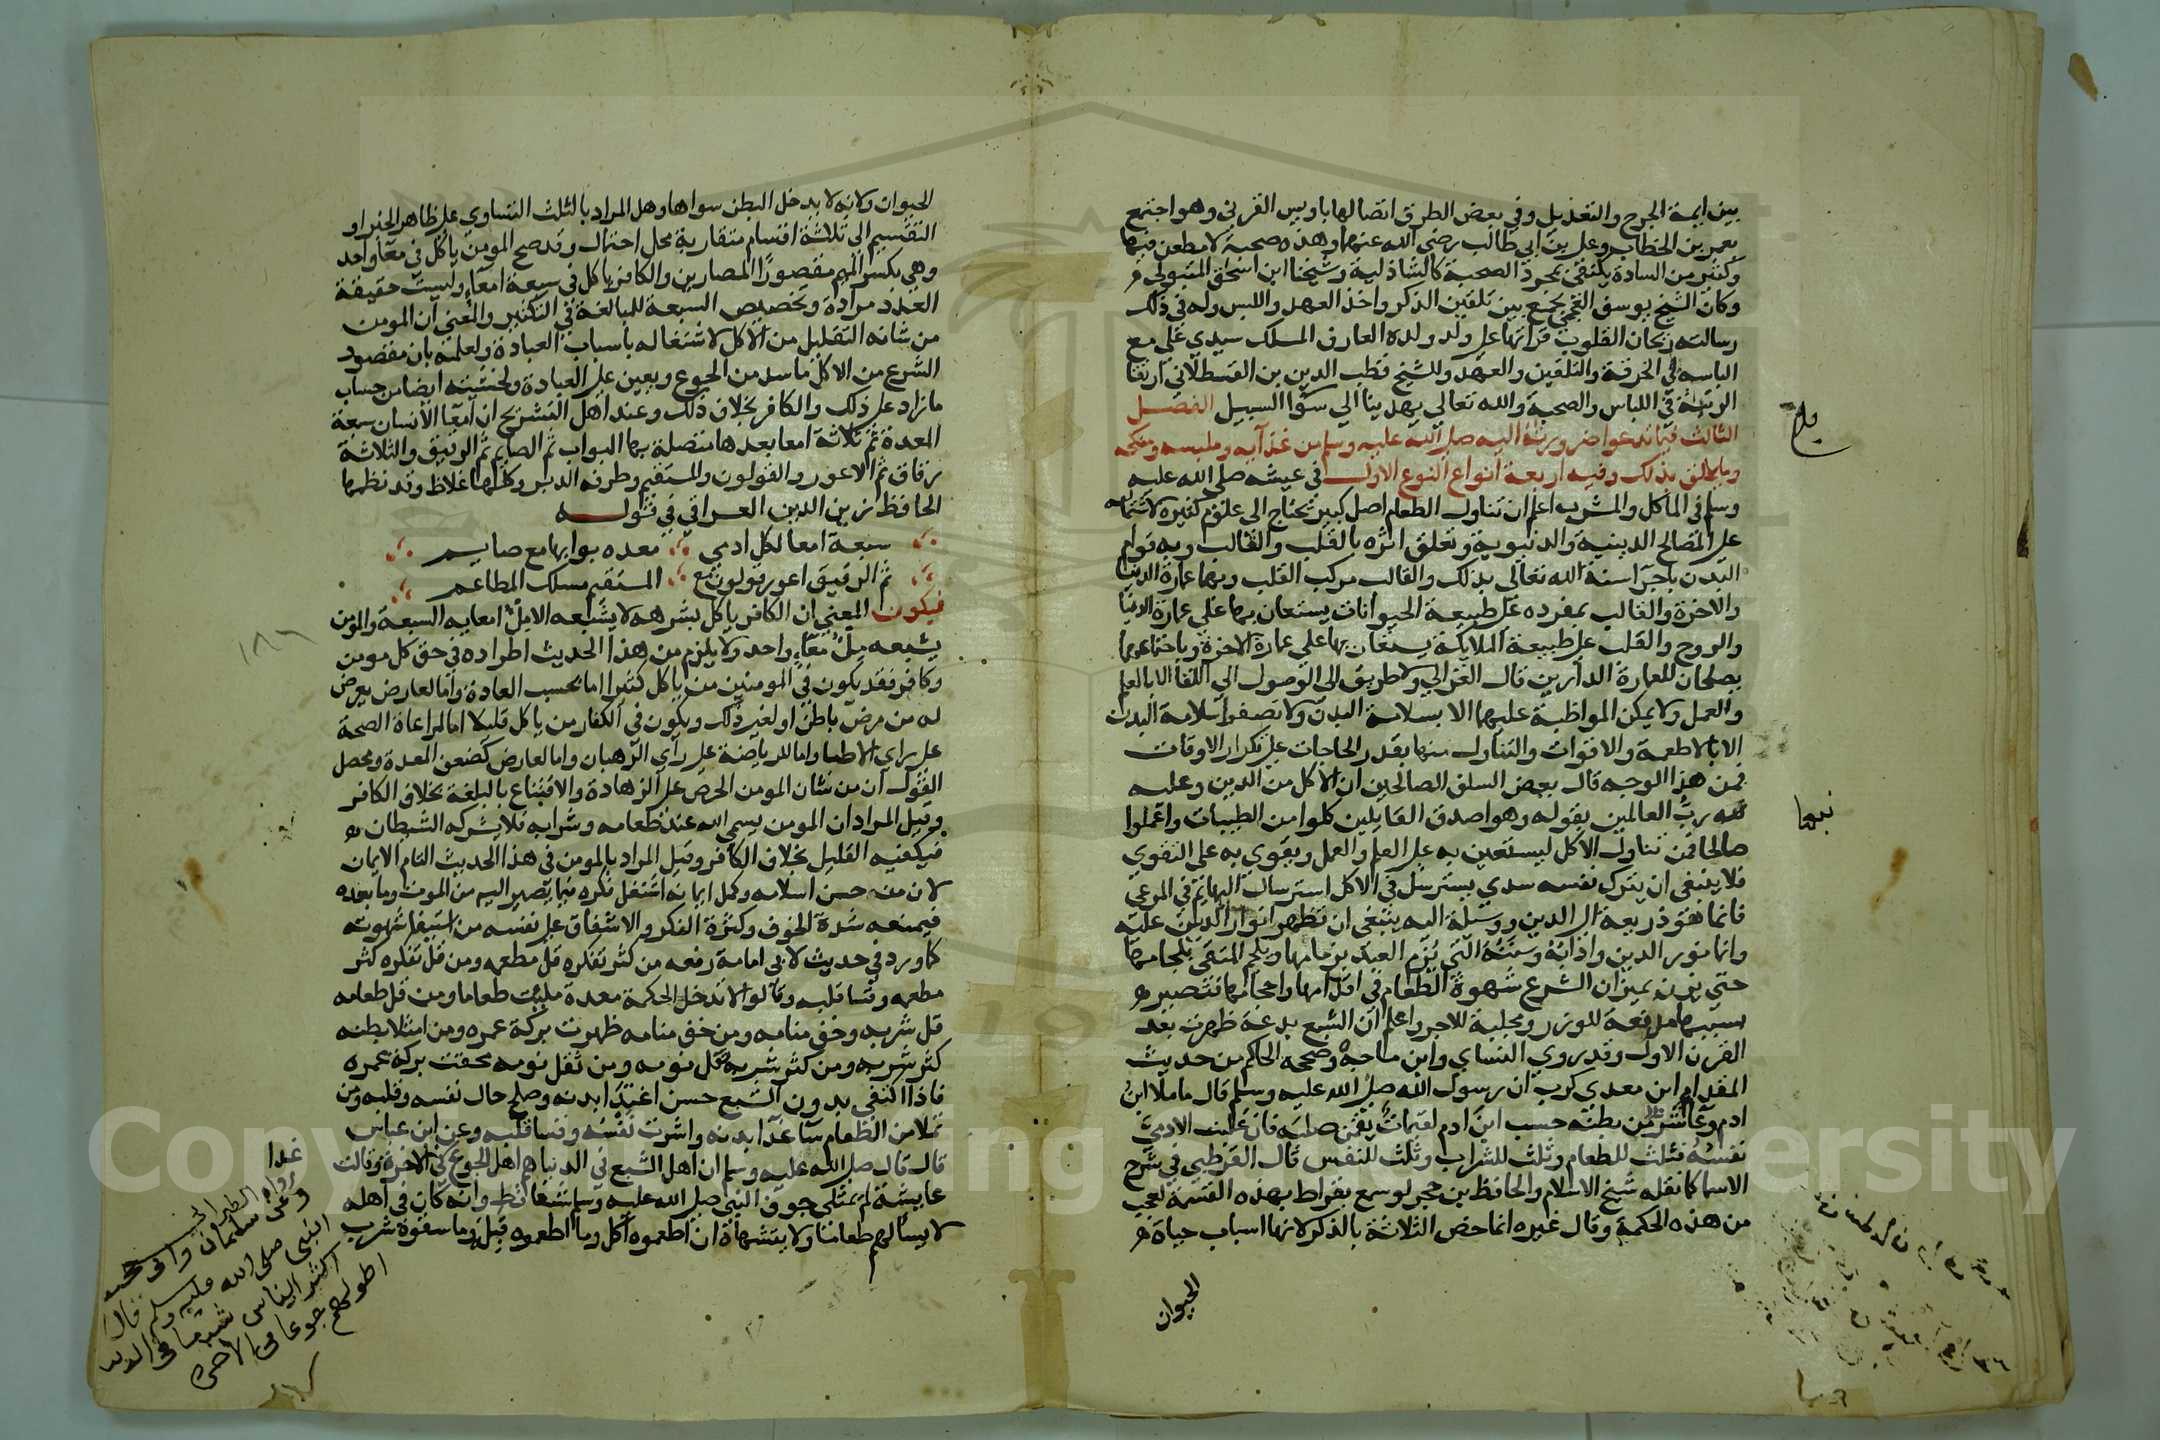 بين ايمة الجرح والتعديل وفي بعض الطرق اتصالها باويس القرني وهو اجتمع
بعمر بن الخطاب وعلي بن ابي طالب رضي الله عنهما وهذه صحبة لا مطعن فيها
وكثير من السادة يكتفي بمجرد الصحبة كالشاذلية وشيخنا ابن اسحق المتبولي
وكان الشيخ يوسف العجمي يجمع بين تلقين الذكر واخذ العهد واللبس وله في ذلك
رسالته ريحان القلوب قراتها على ولد ولده العارف المسلك سيدي علي مع
الباسه لي الخرقة والتلقين والعهد وللشيخ قطب الدين بن القسطلاني ارتقا
الرتبة في اللباس والصحبة والله تعالى يهدينا الي سوا السبيل الفصل
الثالث فيما تدعو اضرورته اليه صلى الله عليه وسلم من غذآيه وملبسه ومنكحه
وما يلحق بذلك وفيه اربعة انواع النوع الاول في عيشه صلى الله عليه
وسلم في الماكل والمشرب اعلم ان تناول الطعام اصل كبير يحتاج الى علوم كثيرة لاشتماله
على المصالح الدينية والدنيوية وتعلق اثره بالقلب والقالب وبه قوام
البدن باجرآ سنة الله تعالى بذلك والقالب مركب القلب وبهما عمارة الدنيا
والاخرة والقالب بمفرده على طبيعة الحيوانات يستعان بها علي عمارة الدنيا
والروح والقلب على طبيعة الملايكة يستعان بها علي عمارة الاخرة وباجتماعهما
يصلحان للعمارة الدارين قال الغزالي ولا طريق الى الوصول الي اللقا الا بالعلم
والعمل ولا يمكن المواظبة عليهما الا بسلامة البدن ولا تصفو اسلامة البدن
الا بالاطعمة والاقوات والتناول منها بقدر الحاجات على تكرار الاوقات
فمن هذا الوجه قال بعض السلف الصالحين ان الاكل من الدين وعليه
نبه رب العالمين بقوله وهو اصدق القايلين كلوا من الطيبات واعملوا
صالحا فمن تناول الاكل ليستعين به على العلم والعمل ويقوي به علي التقوي
فلا ينبغي ان يترك نفسه سدي يسترسل في الاكل استرسال البهايم في المرعي
فانما هو ذريعة الى الدين ووسيلة اليه ينبغي ان تظهر انوار الدين عليه
وانما نور الدين وادابه وسننه التي يزم العبد بزمامها ويلجم المتقي بلجامها
حتي يزن بميزان الشرع شهوة الطعام في اقدامها واحجامها فتصير
بسببها مدفعة للوزر ومجلبة للاجر واعلم ان الشبع بدعة ظهرت بعد
القرن الاول وقد روي النساي وابن ماجه وصححه الحاكم من حديث
المقدام ابن معدي كرب ان رسول الله صلى الله عليه وسلم قال ما ملا ابن
ادم وعآ شرا من بطنه حسب ابن ادم لقيمات يقمن صلبه فان غلبت الادمي
نفسه فثلث للطعام وثلث للشراب وثلث للنفس قال القرطبي في شرح
الاسما كما نقله شيخ الاسلام والحافظ بن حجر لو سمع بقراط بهذه القسمة لعجب
من هذه الحكمة وقال غيره انما خص الثلاثة بالذكر لانها اسباب حياة
الحيوان
بلغ
الحيوان ولانه لا يدخل البطن سواها وهل المراد بالثلث التساوي على ظاهر الخبر او
التقسيم الى ثلاثة اقسام متقاربة محل احتمال وقد صح المومن ياكل في معآ واحد
وهي بكسر الميم مقصورًا المصارين والكافر ياكل في سبعة امعآء وليست حقيقة
العدد مرادة وتخصيص السبعة للمبالغة في التكثير والمعني ان المومن
من شانه التقليل من الاكل لاشتغاله باسباب العبادة ولعلمه بان مقصود
الشرع من الاكل ما سد من الجوع ويعين على العبادة ولخشيته ايضا من حساب
ما زاد على ذلك والكافر بخلاف ذلك وعند اهل التشريح ان امعآ الانسان سبعة
المعدة ثم ثلاثة امعا بعدها متصلة بها البواب ثم الصايم ثم الرقيق والثلاثة
رقاق ثم الاعور والقولون والمستقيم وطرفه الدبر وكلها غلاظ وقد نظمها
الحافظ زين الدين العراقي في قوله
سبعة امعا لكل ادمي معده بوابها مع صايم
ثم الرقيق اعور قولون مع المستقيم مسلك المطاعم
فيكون المعني ان الكافر ياكل بشرهه لا يشبعه الا مل امعايه السبعة والمومن
يشبعه ملُ معآء واحد ولا يلزم من هذا الحديث اطراده في حق كل مومن
وكافر فقد يكون في المومنين من ياكل كثيرا اما بحسب العادة واما لعارض يعرض
له من مرض باطن او لغير ذلك ويكون في الكفار من ياكل قليلا اما لمراعاة الصحة
على راي الاطبا واما للرياضة على رأي الرهبان واما لعارض كضعف المعدة ومحصل
القول ان من شان المومن الحرص على الزهادة والاقتناع بالبلغة بخلاف الكافر
وقيل المراد ان المومن يسمي الله عند طعامه وشرابه فلا يشركه الشيطان
فيكفيه القليل بخلاف الكافر وقيل المراد بالمومن في هذا الحديث التام الايمان
لان من حسن اسلامه وكمل ايمانه اشتغل فكره فيما يصير اليه من الموت وما بعده
فيمنعه شدة الخوف وكثرة الفكر والاشفاق على نفسه من استيفا شهوته
كما ورد في حديث لابي امامة رفعه من كثر تفكره قل مطعمه ومن قل تفكره كثر
مطعمه وقسا قلبه وقالوا لا تدخل الحكمة معدة ملئت طعاما ومن قل طعامه
قل شربه وخف منامه ومن خف منامه ظهرت بركة عمره ومن امتلا بطنه
كثر شربه ومن كثر شربه ثقل نومه ومن ثقل نومه محقت بركة عمره
فاذا اكتفي بدون الشبع حسن اغتذا بدنه وصلح حال نفسه وقلبه ومن
تملا من الطعام سآ غذآ بدنه واشرت نفسه وقسا قلبه وعن ابن عباس
قال قال صلى الله عليه وسلم ان اهل الشبع في الدنيا هم اهل الجوع في الاخرة وقالت
عايشة لم يمتلي جوف النبي صلى الله عليه وسلم شبعا قط وانه كان في اهله
لا يسالهم طعاما ولا يتشهاه ان اطعموه اكل وما اطعموه قبل وما سقوه شرب
١٨٦
غدا
رواه الطبراني
وعن سلمان وابي جحيفة
النبي صلى الله عليه وسلم قال
اكثر الناس شبعا في الدنيا
اطولهم جوعا في الاخرة